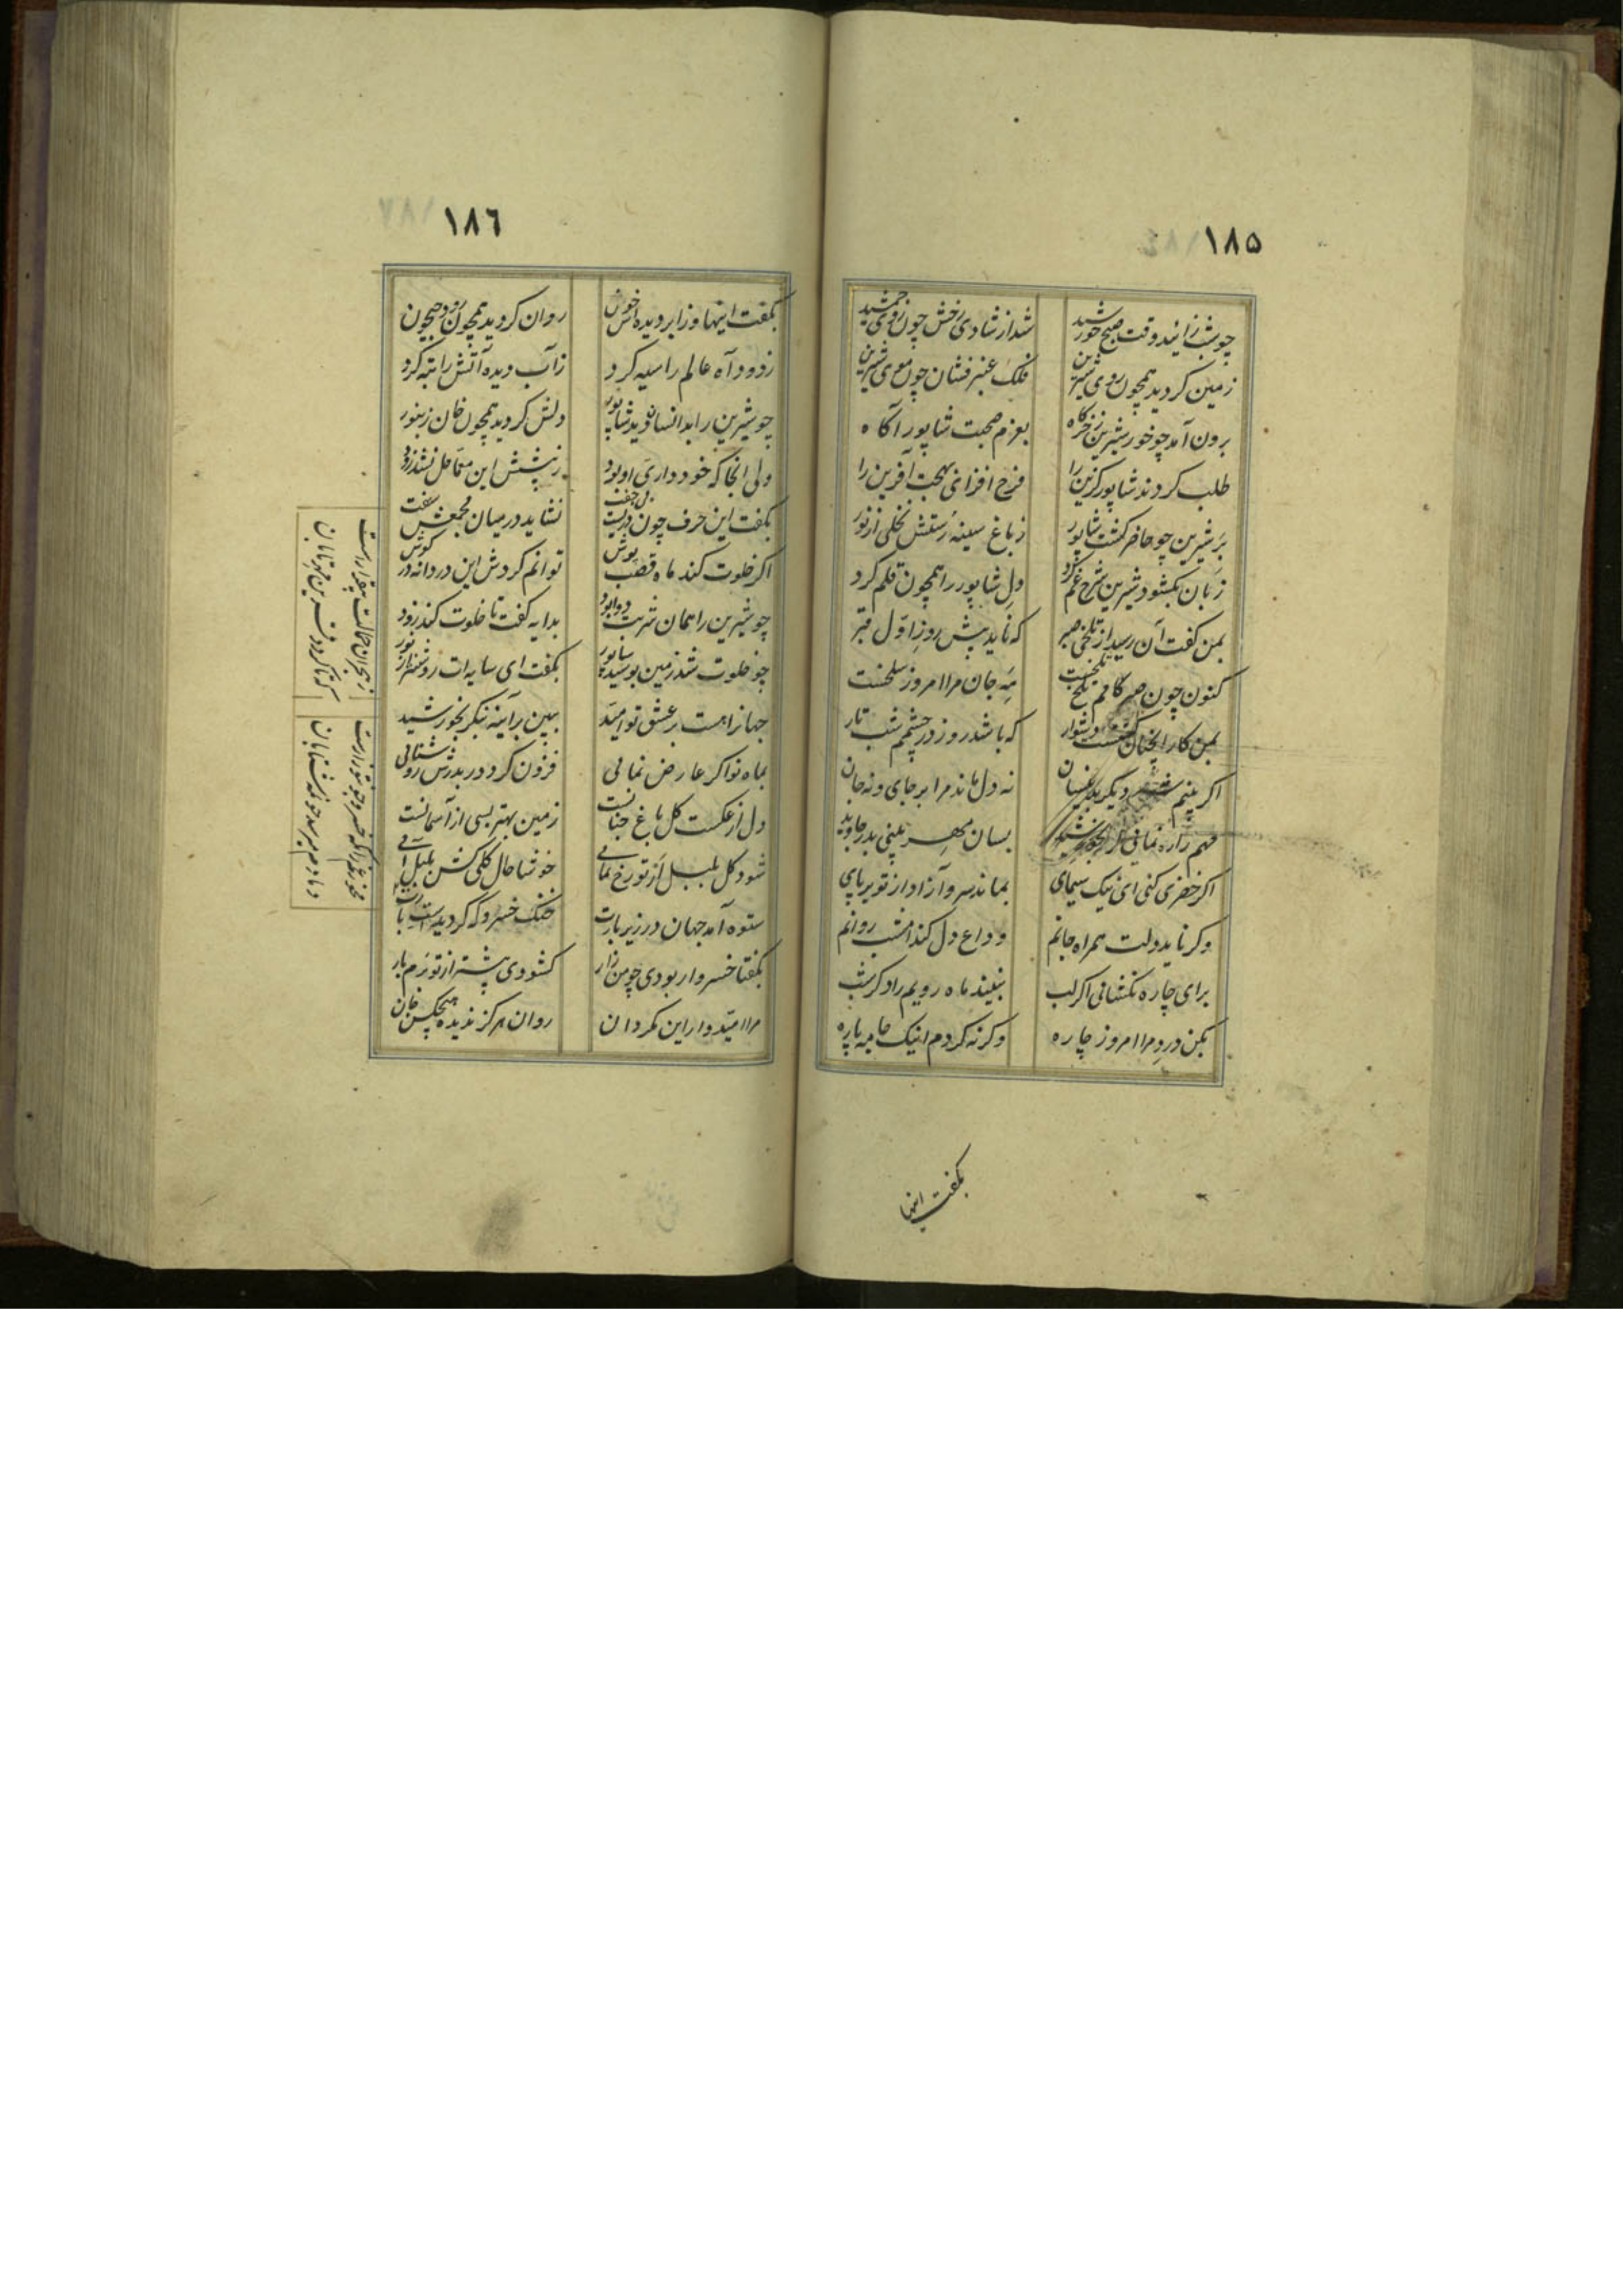 ۱۸۵
چو شب زائید وقت صبح خورشید شد از شادی رخش چون روی جمشید
زمین کردید همچون روی شیرین فلک عنبر فشان چون موی شیرین
برون آمد چو خور شیرین ز خرکاه بعزم صحبت شاپور آکاه
طلب کردند شاپور کزین را فرح افزای بهجت آفرین را
بر شیرین چو حاضر کشت شاپور ز باغ سینه رستش نخلی از نور
زبان بکشود شیرین شرح غم کرد دل شاپور را همچون قلم کرد
بمن کفت آن رسید از تلخی صبر که ناید پیش روز اول قبر
کنون چون صبر کامم تلخ مرا امروز سلخست
بمن کار آنچنان دشوار که باشد روز در چشمم شب تار
اکر بینم دیکر نه دل ماند مرا بر جای و نه جان
بسان مهر بینی بدر جاوید
اکر خضری کنی ای نیک سیمای بماند سرو آزاد از تو بر پای
وکر ناید دولت همراه جانم وداع دل کند امشب روانم
برای چاره نکشائی اکر لب نبیند ماه رویم را دکر شب
بکن درد مرا امروز چاره وکرنه کردم اینک جامه پاره
بکفت اینها
۱۸۶
بکفت اینها و زابر دیده اش خون روان کردید همچون رود جیحون
ز دود آه عالم را سیه کرد ز آب دیده آتش را تبه کرد
چو شیرین را بدانسان دید شاپور دلش کردید همچون خان زنبور
ولی آنجا که خود داری او بود ز پیشش این معما حل نشد زود
بکفت این حرف چون نشاید در میان مجمعش سفت
اکر خلوت کند ماه قصب پوش توانم کردش این دردانه در کوش
چو شیرین را همان شربت دوا بود بدایه کفت تا خلوت کند زود
چو خلوت شد زمین بوسید شاپور بکفت ای سایه ات روشنتر از نور
جهانرا هست بر عشق تو امید ببین بر آینه بنکر بخورشید
بماه نو اکر عارض نمائی فزون کردد ز بدرش روشنائی
دل از عکست کل باغ جنانست زمین بهتر بسی از آسمانست
شود کل بلبل از تو رخ نمائی خوشا حال کلی کش بلبل آئی
ستوه آمد جهان در زیر بارت خنک خسرو که کردید
بکفتا خسرو ار بودی چو من زار کشودی پیشتر از تو زم بار
مرا امیدوار این مکردان روان هرکز ندیده هیچکس جان
ز هجران حالت بیقرارست که تا کردد قرین مهر تابان
مخور غم زانکه خسرو جو تو زارست دمادم میرسد خو شتابان